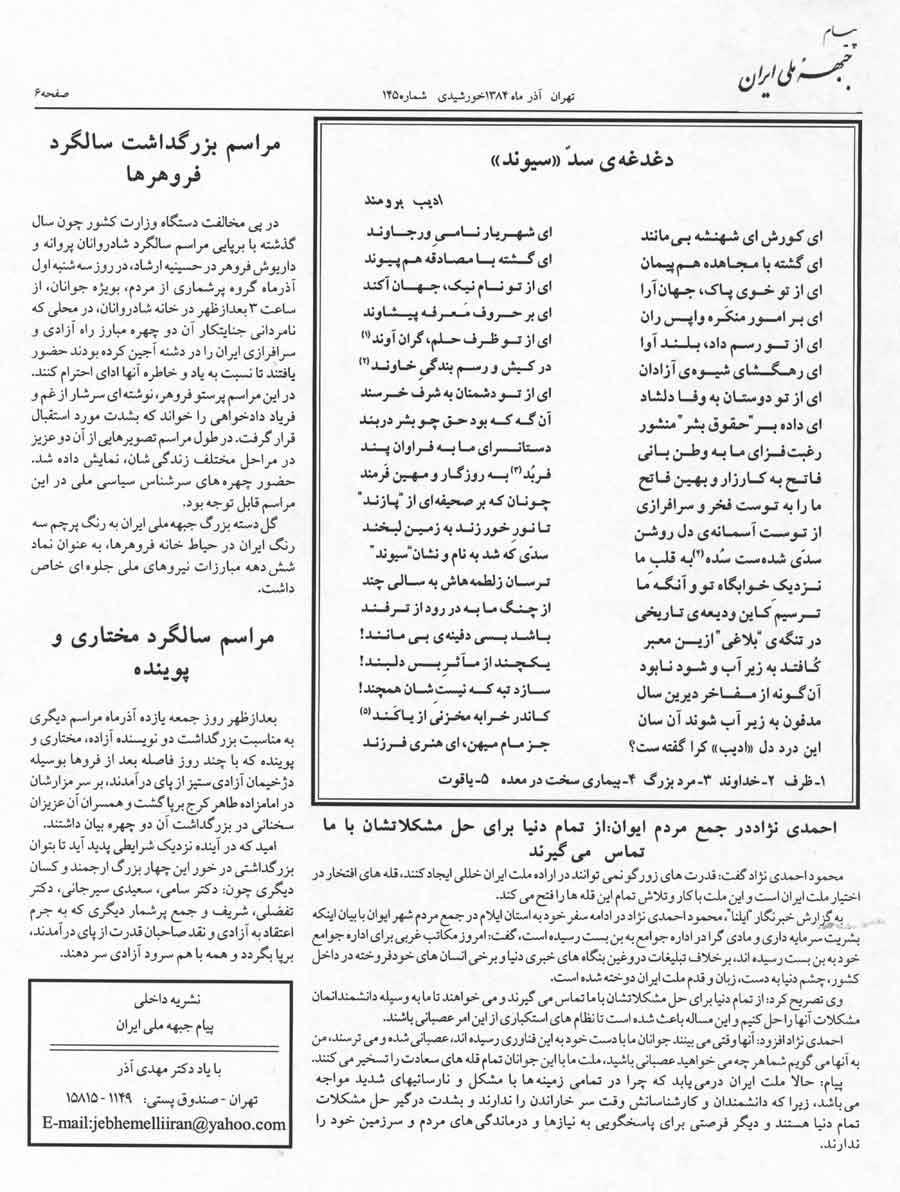 پیام
جبههٔ ملی ایران
تهران آذر ماه ۱۳۸۴خورشیدی شماره۱۴۵
صفحه۶
دغدغه‌ی سدّ «سیوند»
ادیب برومند
ای کورش ای شهنشه بی‌مانند
ای شهریار نامی ورجاوند
ای گشته با مجاهده هم‌پیمان
ای گشته با مصادقه هم‌پیوند
ای از تو خوی پاک، جهان‌آرا
ای از تو نام نیک، جهان‌آکند
ای بر امور منکَره واپس ران
ای بر حروف مَعرفه پیشاوند
ای از تو رسم داد، بلند آوا
ای از تو ظرف حلم، گران آوند(۱)
ای رهگشای شیوه‌ی آزادان
در کیش و رسم بندگیِ خاوند(۲)
ای از تو دوستان به وفا دلشاد
ای از تو دشمنان به شرف خرسند
ای داده بر"حقوق بشر"منشور
آن گه که بود حق چو بشر دربند
رغبت‌فزای ما به وطن بانی
دستانسرای ما به فراوان پند
فاتح به کارزار و بهین فاتح
فربُد(۳) به روزگار و مهین فَرمند
ما را به توست فخر و سرافرازی
چونان که بر صحیفه‌ای از "پازند"
از توست آسمانه‌ی دل روشن
تا نورِ خور زند به زمین لبخند
سدّی شده‌ست سُده(۴)به قلبِ ما
سدّی که شد به نام و نشان"سیوند"
نزدیک خوابگاه تو و آنگه ما
ترسان زلطمه‌هاش به سالی چند
ترسیم کاین ودیعه‌ی تاریخی
از چنگ ما به در رود از ترفند
در تنگه‌ی "بلاغی"ازین معبر
باشد بسی دفینه‌ی بی مانند!
کُافتد به زیر آب و شود نابود
یکچند از مآثرِ بس دلبند!
آن گونه از مفاخر دیرین سال
سازد تبه که نیستِ شان همچند!
مدفون به زیر آب شوند آن سان
کاندر خرابه مخزنی از یاکند(۵)
این درد دل «ادیب» کرا گفته ست؟
جز مام میهن، ای هنری فرزند
۱-ظرف ۲-خداوند ۳-مرد بزرگ ۴-بیماری سخت در معده ۵-یاقوت
احمدی نژاددر جمع مردم ایوان:از تمام دنیا برای حل مشکلاتشان با ما
تماس می گیرند
محمود احمدی نژاد گفت: قدرت های زورگو نمی توانند در اراده ملت ایران خللی ایجاد کنند، قله های افتخار در
اختیار ملت ایران است و این ملت با کار و تلاش تمام این قله ها را فتح می کند.
به گزارش خبرنگار "ایلنا"، محمود احمدی نژاد در ادامه سفر خود به استان ایلام در جمع مردم شهر ایوان با بیان اینکه
بشریت سرمایه داری و مادی گرا در اداره جوامع به بن بست رسیده است، گفت: امروز مکاتب غربی برای اداره جوامع
خود به بن بست رسیده اند، برخلاف تبلیغات دروغین بنگاه های خبری دنیا و برخی انسان های خودفروخته در داخل
کشور، چشم دنیا به دست، زبان و قدم ملت ایران دوخته شده است.
وی تصریح کرد: از تمام دنیا برای حل مشکلاتشان با ما تماس می گیرند و می خواهند تا ما به وسیله دانشمندانمان
مشکلات آنها را حل کنیم و این مساله باعث شده است تا نظام های استکباری از این امر عصبانی باشند.
احمدی نژاد افزود: آنها وقتی می بینند جوانان ما با دست خود به این فناوری رسیده اند، عصبانی شده و می ترسند، من
به آنها می گویم شما هر چه می خواهید عصبانی باشید، ملت ما با این جوانان تمام قله های سعادت را تسخیر می کنند.
پیام: حالا ملت ایران درمی‌یابد که چرا در تمامی زمینه‌ها با مشکل و نارسائیهای شدید مواجه
می‌باشد، زیرا که دانشمندان و کارشناسانش وقت سر خاراندن را ندارند و بشدت درگیر حل مشکلات
تمام دنیا هستند و دیگر فرصتی برای پاسخگویی به نیازها و درماندگی‌های مردم و سرزمین خود را
ندارند.
مراسم بزرگداشت سالگرد
فروهرها
در پی مخالفت دستگاه وزارت کشور چون سال
گذشته با برپایی مراسم سالگرد شادروانان پروانه و
داریوش فروهر در حسینیه ارشاد، در روز سه شنبه اول
آذرماه گروه پرشماری از مردم، بویژه جوانان، از
ساعت ۳ بعدازظهر در خانه شادروانان، در محلی که
نامردانی جنایتکار آن دو چهره مبارز راه آزادی و
سرافرازی ایران را در دشنه آجین کرده بودند حضور
یافتند تا نسبت به یاد و خاطره آنها ادای احترام کنند.
در این مراسم پرستو فروهر، نوشته‌ای سرشار از غم و
فریاد دادخواهی را خواند که بشدت مورد استقبال
قرار گرفت. در طول مراسم تصویرهایی از آن دو عزیز
در مراحل مختلف زندگی شان، نمایش داده شد.
حضور چهره های سرشناس سیاسی ملی در این
مراسم قابل توجه بود.
گل دسته بزرگ جبهه ملی ایران به رنگ پرچم سه
رنگ ایران در حیاط خانه فروهرها، به عنوان نماد
شش دهه مبارزات نیروهای ملی جلوه ای خاص
داشت.
مراسم سالگرد مختاری و
پوینده
بعدازظهر روز جمعه یازده آذرماه مراسم دیگری
به مناسبت بزرگداشت دو نویسنده آزاده، مختاری و
پوینده که با چند روز فاصله بعد از فروها بوسیله
دژخیمان آزادی ستیز از پای درآمدند، بر سر مزارشان
در امامزاده طاهر کرج برپا گشت و همسران آن عزیزان
سخنانی در بزرگداشت آن دو چهره بیان داشتند.
امید که در آینده نزدیک شرایطی پدید آید تا بتوان
بزرگداشتی در خور این چهار بزرگ ارجمند و کسان
دیگری چون: دکتر سامی، سعیدی سیرجانی، دکتر
تفضلی، شریف و جمع پرشمار دیگری که به جرم
اعتقاد به آزادی و نقد صاحبان قدرت از پای درآمدند،
برپا بگردد و همه با هم سرود آزادی سر دهند.
نشریه داخلی
پیام جبهه ملی ایران
با یاد دکتر مهدی آذر
تهران - صندوق پستی: ۱۱۴۹ - ۱۵۸۱۵
E-mail:jebhemelliiran@yahoo.com